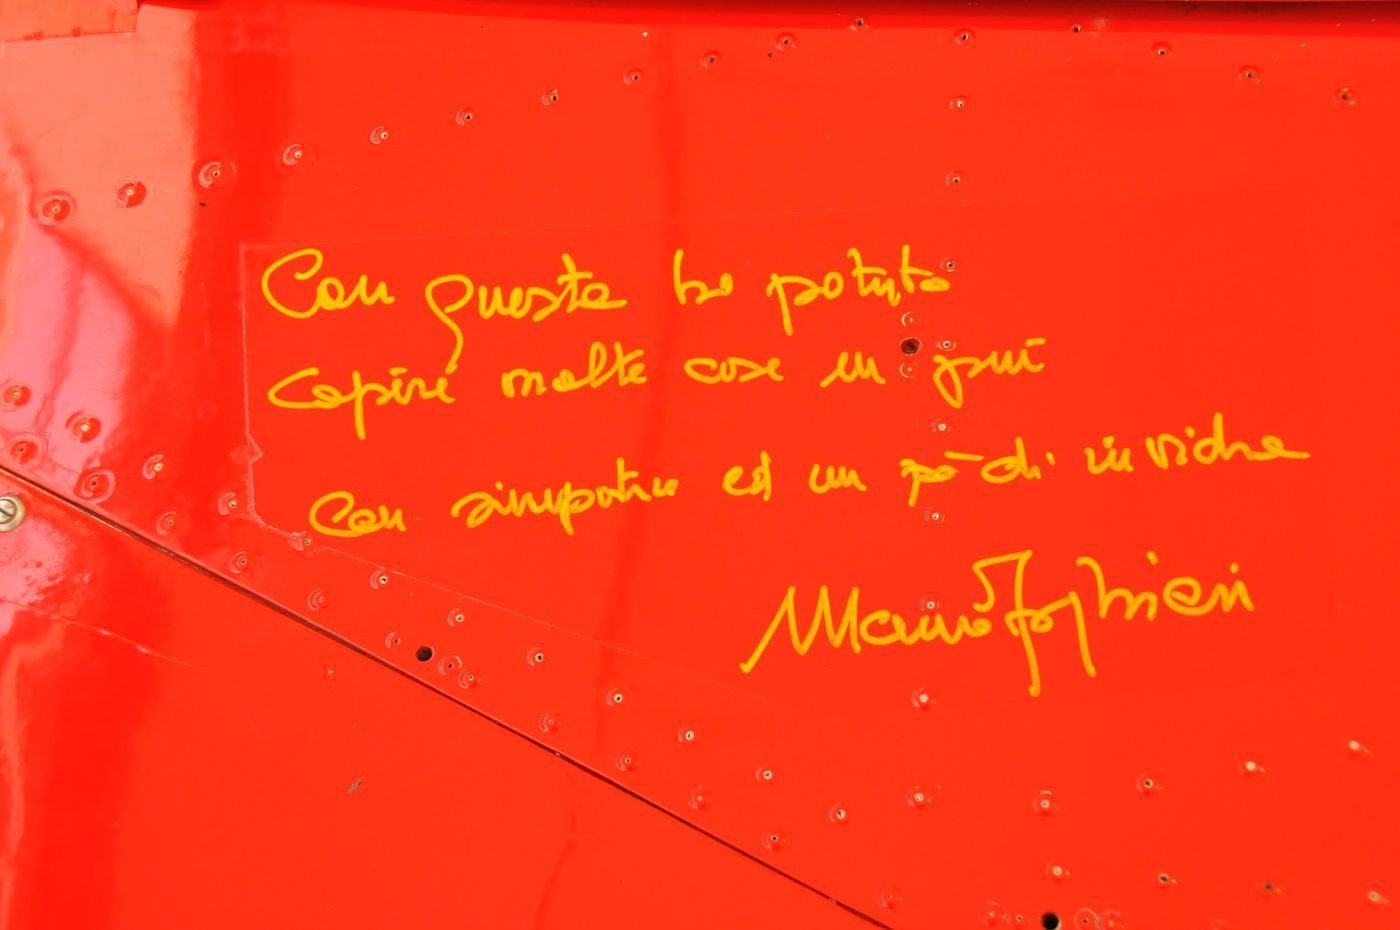 Con questa ho potuto
capire molte cose in più
Con simpatia ed un pò di invidia
Mauro Forghieri